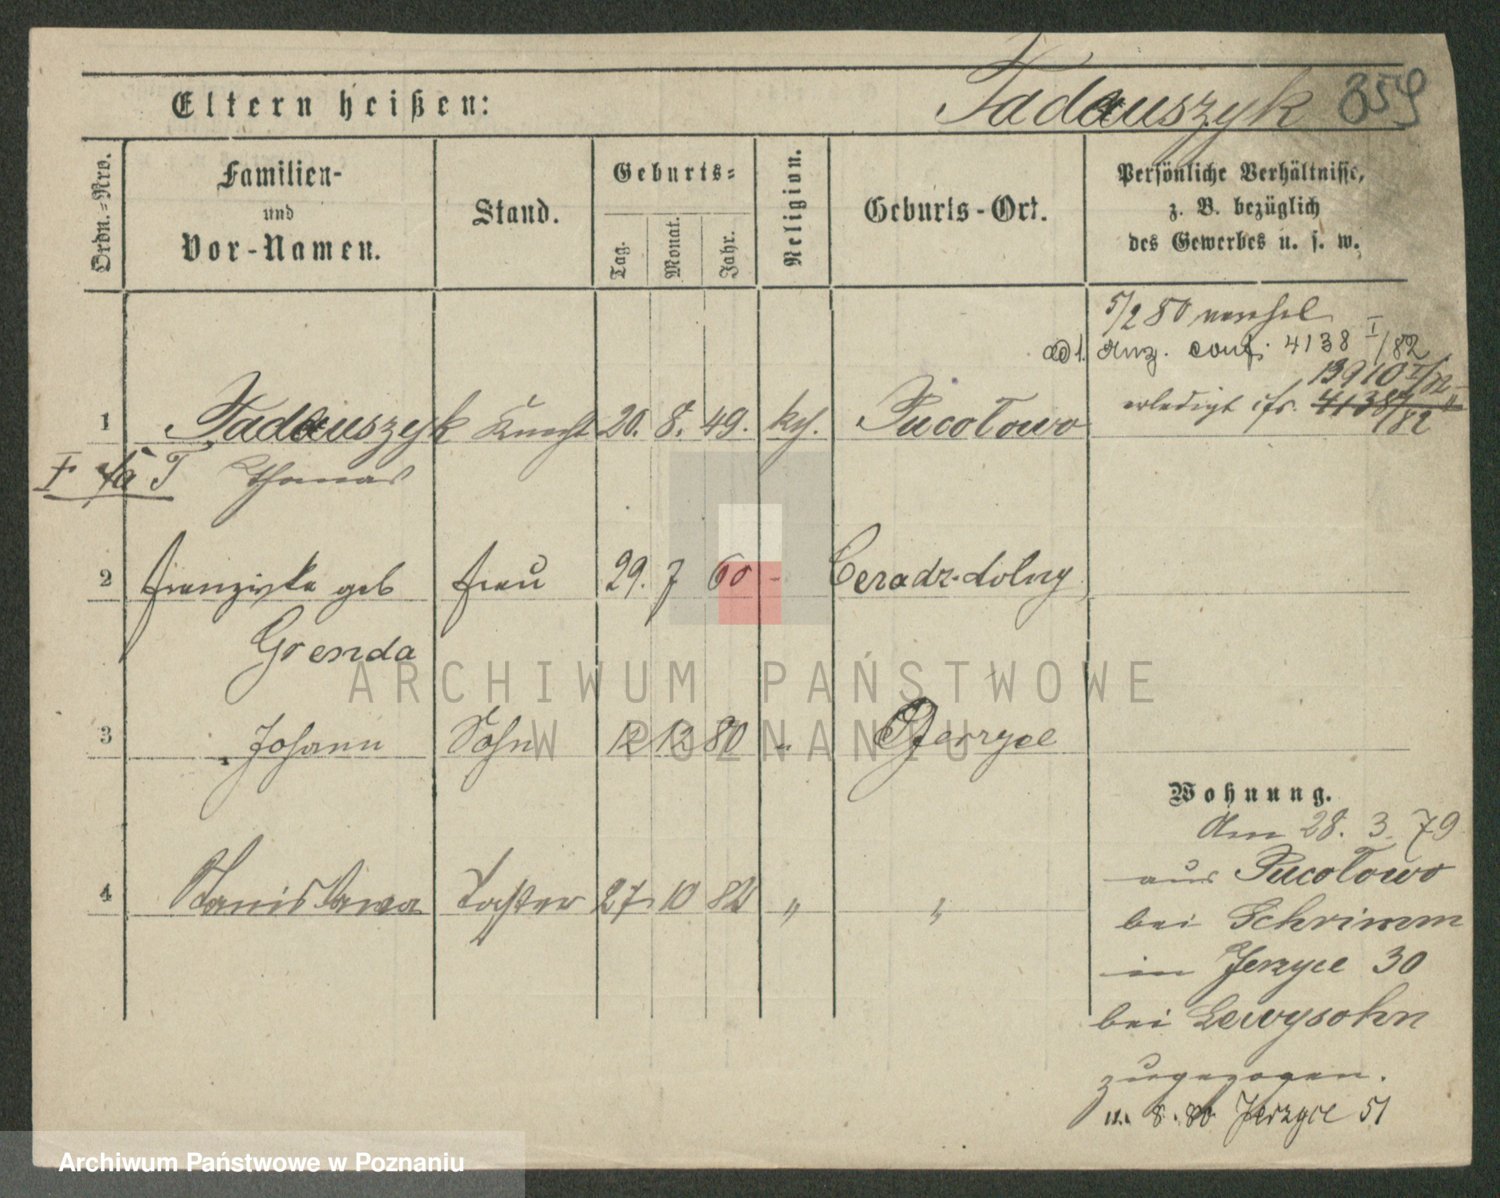 Eltern heißen: Tadauszyk 359
Ordn.-Nro.
Familien-
und
Vor-Namen.
Stand.
Geburts-
Tag.
Monat.
Jahr.
Religion.
Geburts-Ort.
Persönliche Verhältnisse,
z. B. bezüglich
des Gewerbes u. s. w.
5/2 80
ad 1. Anz. conf. 4138 I/82
13910
erledigt 4138/82
1 Tadauszyk Knecht 20. 8. 49. kth. Pucołowo
Thomas
2 Franziska geb Frau 29. 7 60 - Ceradz-dolny
Grenda
3 Johann Sohn 12 12 80 " Jerzyce
Wohnung.
Am 28. 3. 79
4 Stanisława Tochter 27 10 82 " "
aus Pucołowo
bei Schrimm
in Jerzyce 30
bei Lewysohn
zugezogen.
n. 8. 80 Jerzyce 51
ARCHIWUM PAŃSTWOWE
W POZNANIU
Archiwum Państwowe w Poznaniu